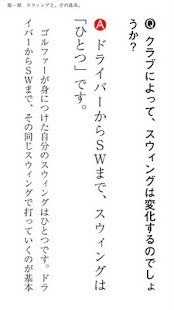 第一章　スウィングと、その基本。
Ⓠ クラブによって、スウィングは変化するのでしょ
うか？
Ⓐ ドライバーからSWまで、スウィングは
「ひとつ」です。
ゴルファーが身につけた自分のスウィングはひとつです。ドラ
イバーからSWまで、その同じスウィングで打っていくのが基本